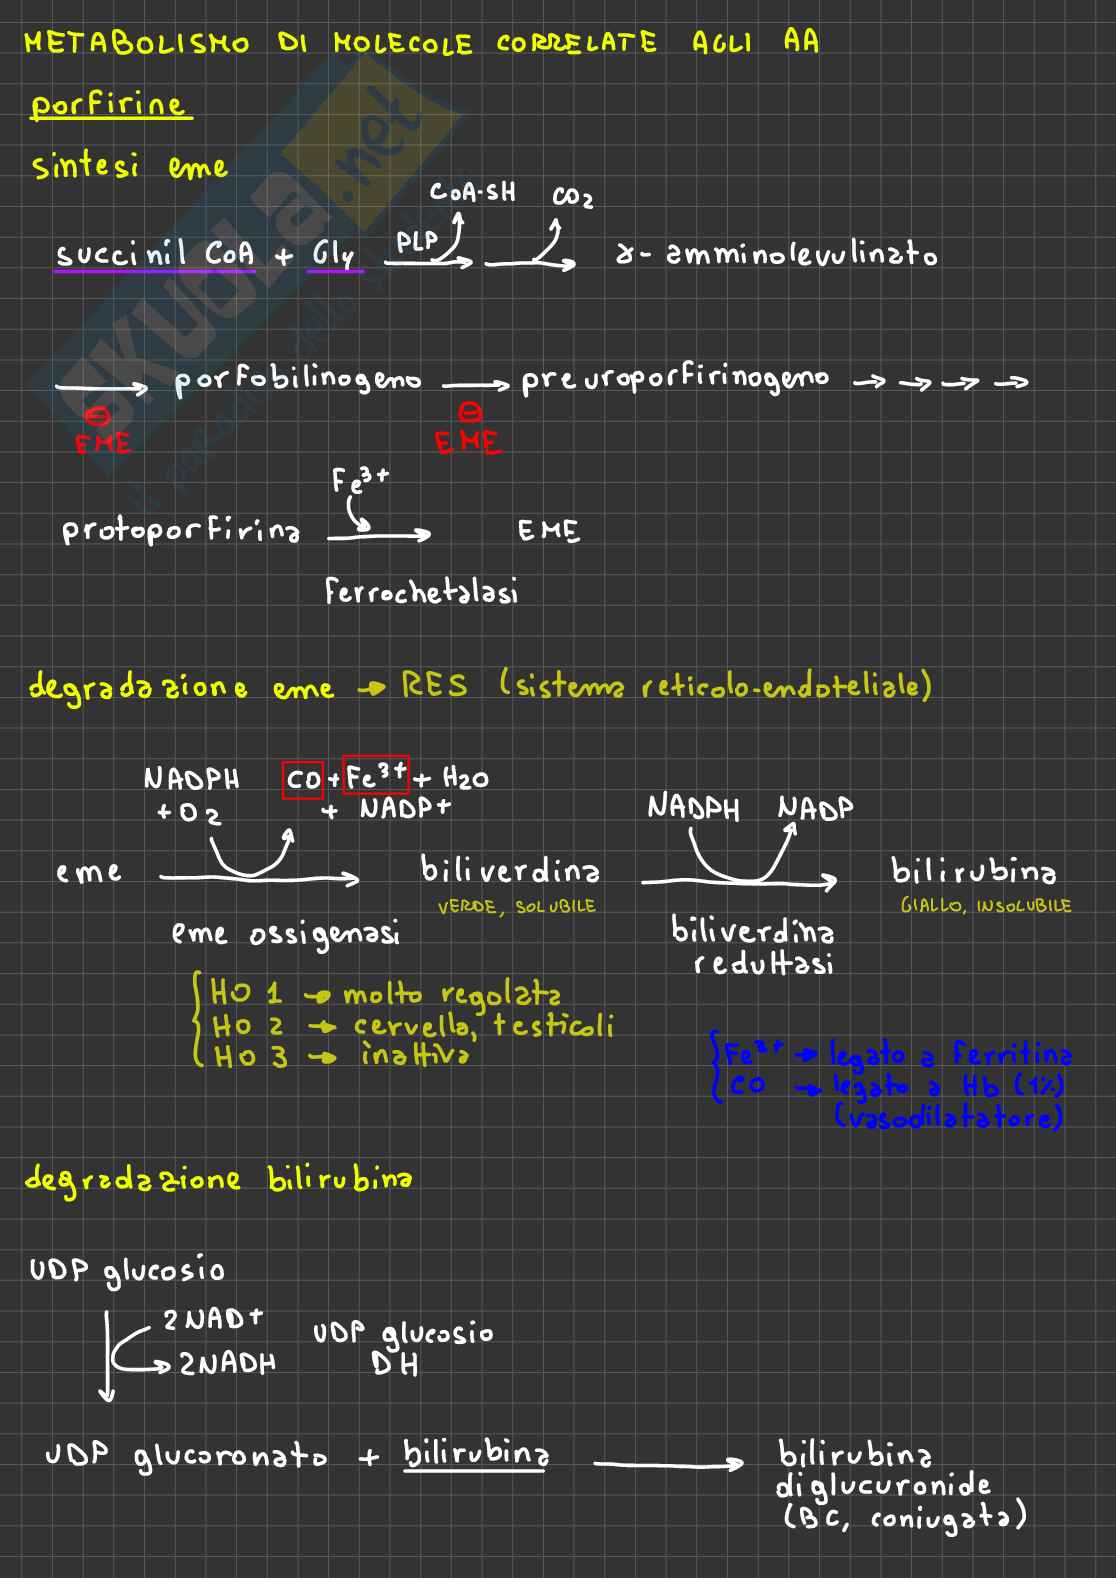 METABOLISMO DI MOLECOLE CORRELATE AGLI AA
porfirine
sintesi eme
CoA-SH CO2
succinil CoA + Gly PLP → → γ- amminolevulinato
→ porfobilinogeno → preuroporfirinogeno → → → →
⊖ ⊖
EME EME
Fe3+
protoporfirina → EME
ferrochetalasi
degradazione eme → RES (sistema reticolo-endoteliale)
NADPH CO + Fe3+ + H2O
+ O2 + NADP+ NADPH NADP
eme → biliverdina → bilirubina
VERDE, SOLUBILE GIALLO, INSOLUBILE
eme ossigenasi biliverdina
reduttasi
{ HO 1 → molto regolata
HO 2 → cervello, testicoli
HO 3 → inattiva
{ Fe3+ → legato a ferritina
CO → legato a Hb (1%)
(vasodilatatore)
degradazione bilirubina
UDP glucosio
2NAD+
UDP glucosio
2NADH DH
UDP glucoronato + bilirubina → bilirubina
diglucuronide
(BC, coniugata)
SKUOLA.net